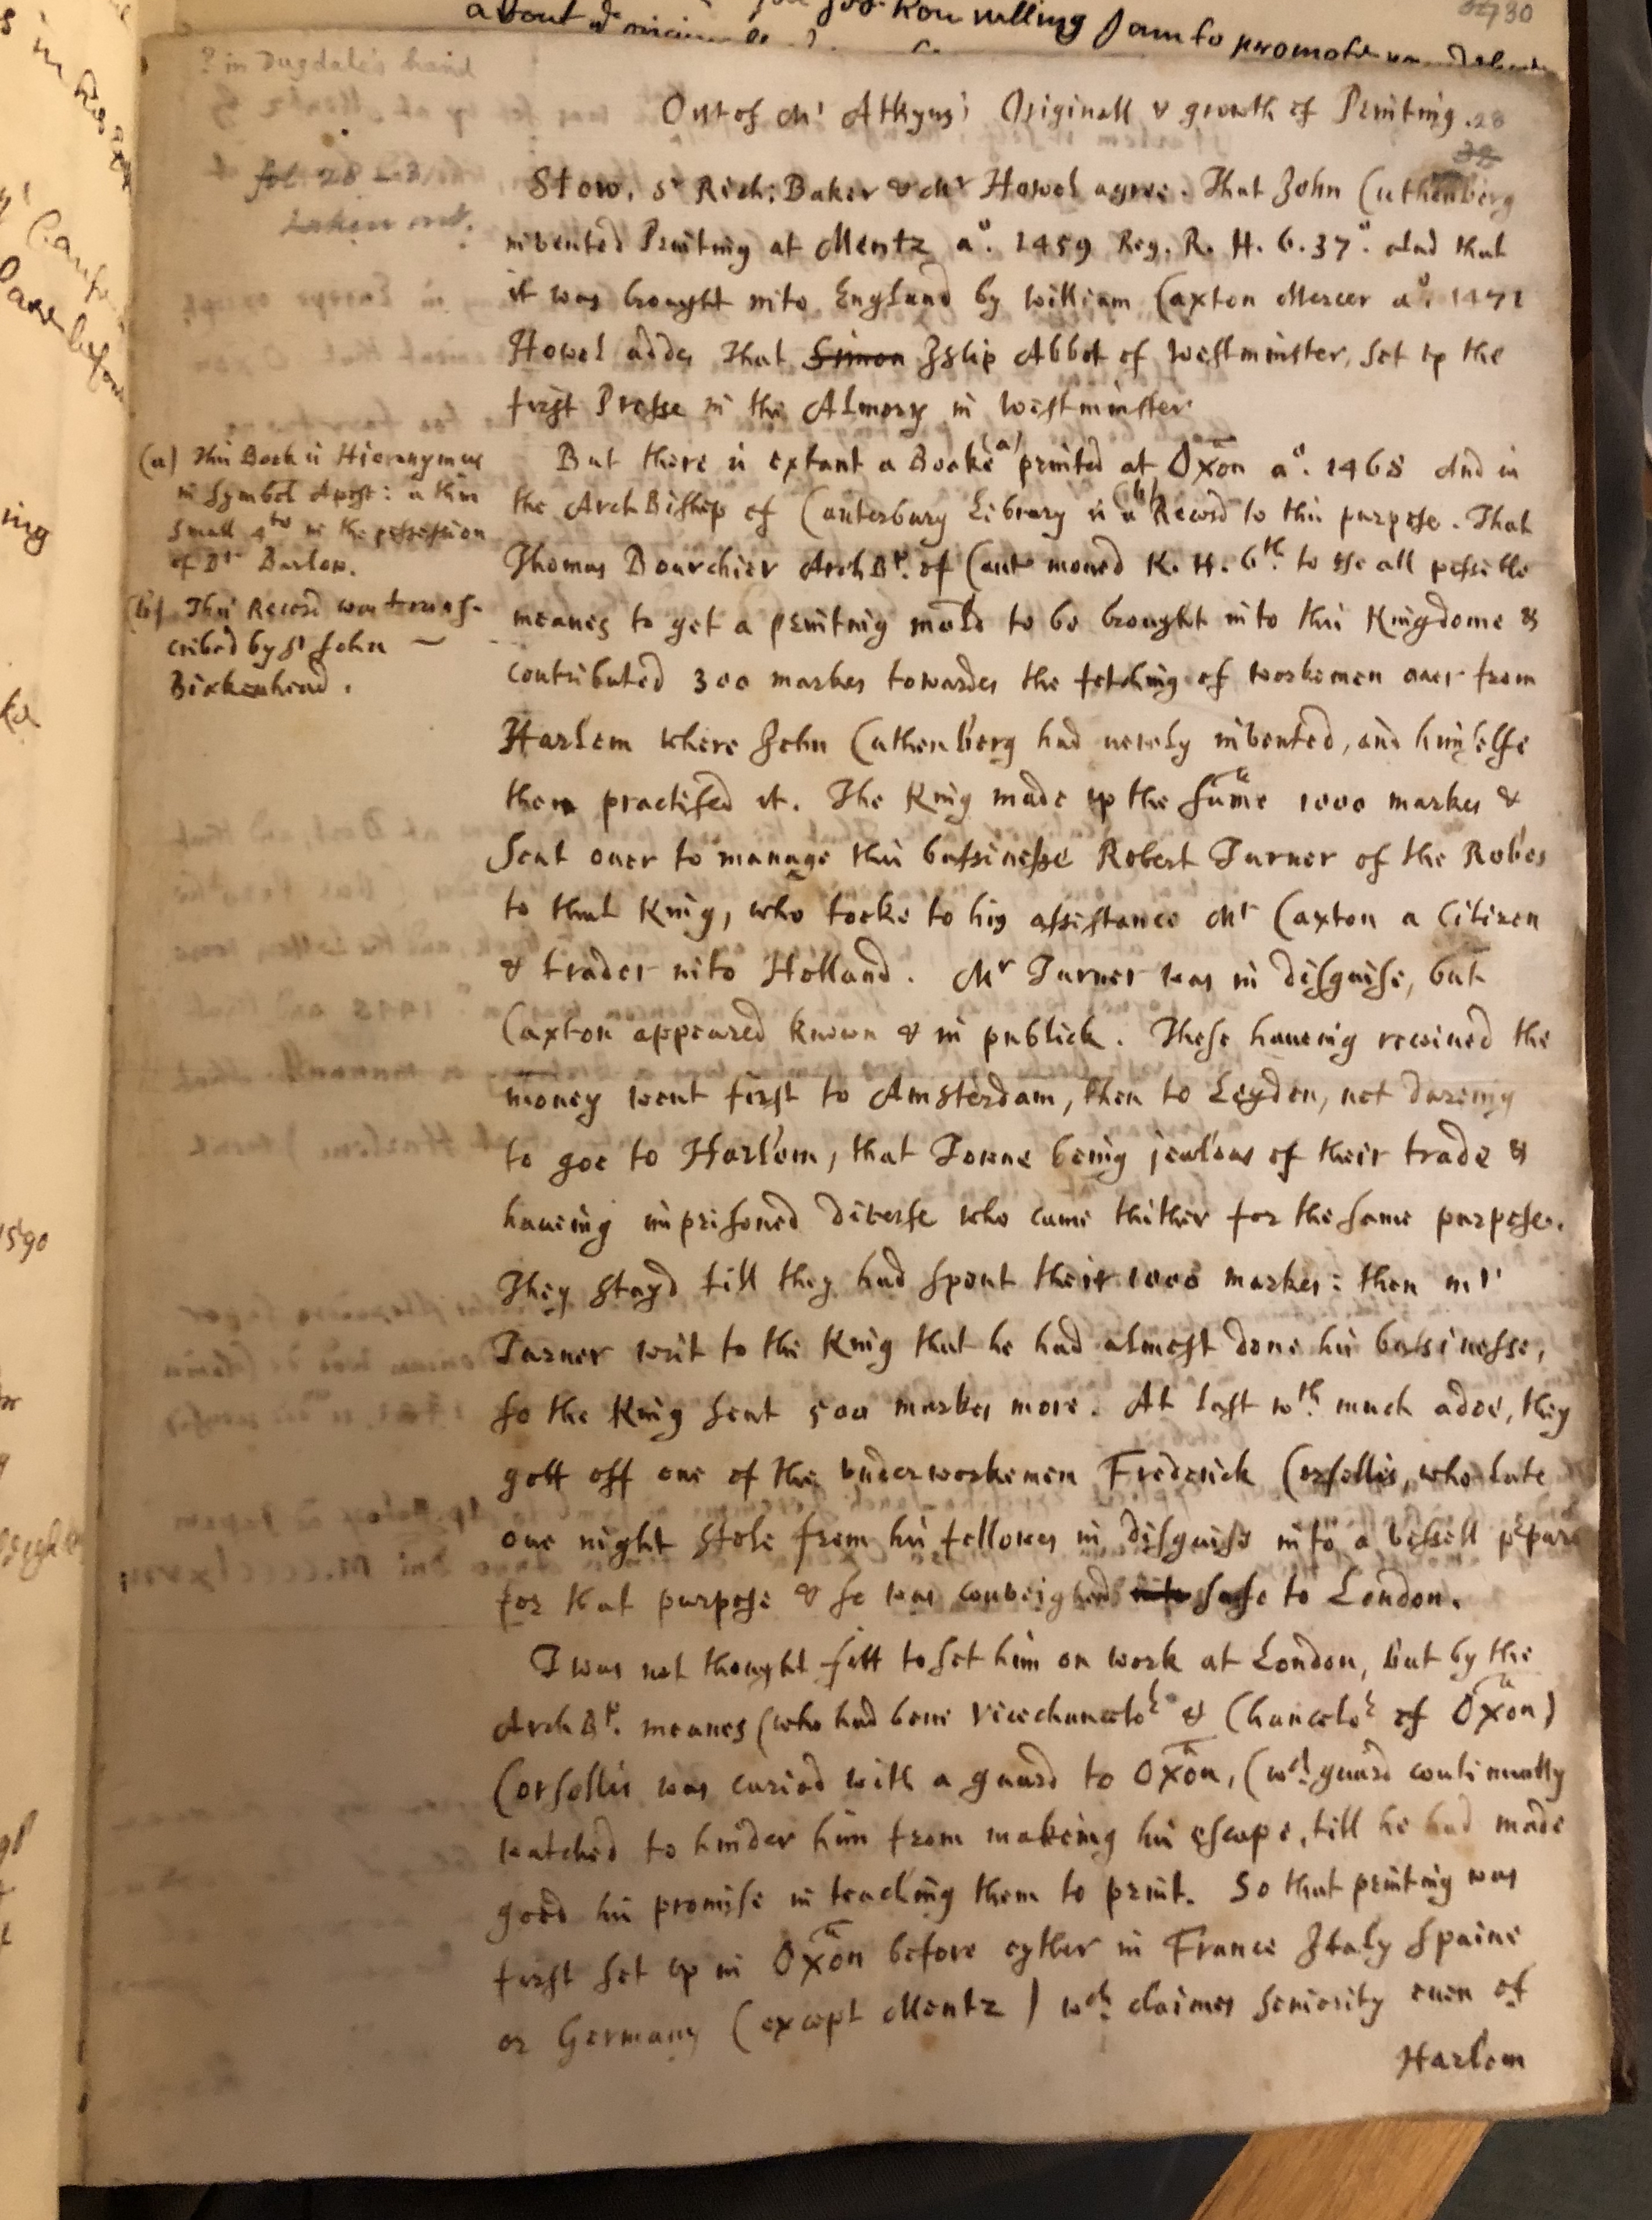 30
? in Dugdale's hand
Out of Mr Atkyns's Originall & growth of Printing.
28
38
fol. 28 – 31
taken out.
Stow, Sr Rich: Baker & Mr Howel agree. That John Cuthenberg
invented Printing at Mentz ao. 1459 Reg. R. H. 6. 37o. And that
it was brought into England by William Caxton Mercer ao. 1471
Howel addes That Simon Islip Abbot of Westminster, set up the
first Presse in the Almory in Westminster
But there is extant a Booke (a) printed at Oxon ao. 1468 And in
the ArchBishop of Canterbury Library is a (b) Record to this purpose. That
Thomas Bourchier ArchBp. of Cant moued K. H. 6th. to use all possible
meanes to get a printing mold to be brought into this Kingdome &
contributed 300 markes towardes the fetching of workemen ouer from
Harlem where John Cuthenberg had newly invented, and himselfe
then practised it. The King made up the sume 1000 markes &
Sent ouer to manage this bussinesse Robert Turner of the Robes
to that King, who tooke to his assistance Mr Caxton a Citizen
& trader into Holland. Mr Turner was in disguise, but
Caxton appeared known & in publick. These haueing receiued the
money went first to Amsterdam, then to Leyden, not dareing
to goe to Harlem, that Towne being jealous of their trade &
haueing imprisoned diverse who came thither for the same purpose.
They stayd till they had spent their 1000 markes: then Mr
Turner writ to the King that he had almost done his bussinesse,
so the King sent 500 markes more. At last wth. much adoe, they
gott off one of the vnderworkemen Frederick Corsellis, who late
one night stole from his fellowes in disguise into a vessell ppar
for that purpose & so was conveighed into safe to London.
T was not thought fitt to set him on work at London, but by the
ArchBp. meanes (who had bene Vicechancelor & Chancelor of Oxon)
Corsellis was caried with a guard to Oxon, (wch. guard continually
watched to hinder him from makeing his escape, till he had made
good his promise in teaching them to print. So that printing was
first set up in Oxon before eyther in France Italy Spaine
or Germany (except Mentz) wch. claimes seniority euen of
Harlem
(a) This Book is Hieronymus
in Symbol Apost: a thin
small 4to in the possession
of Dr Barlow.
(b) This Record was trans-
cribed by Sr John
Birkenhead.